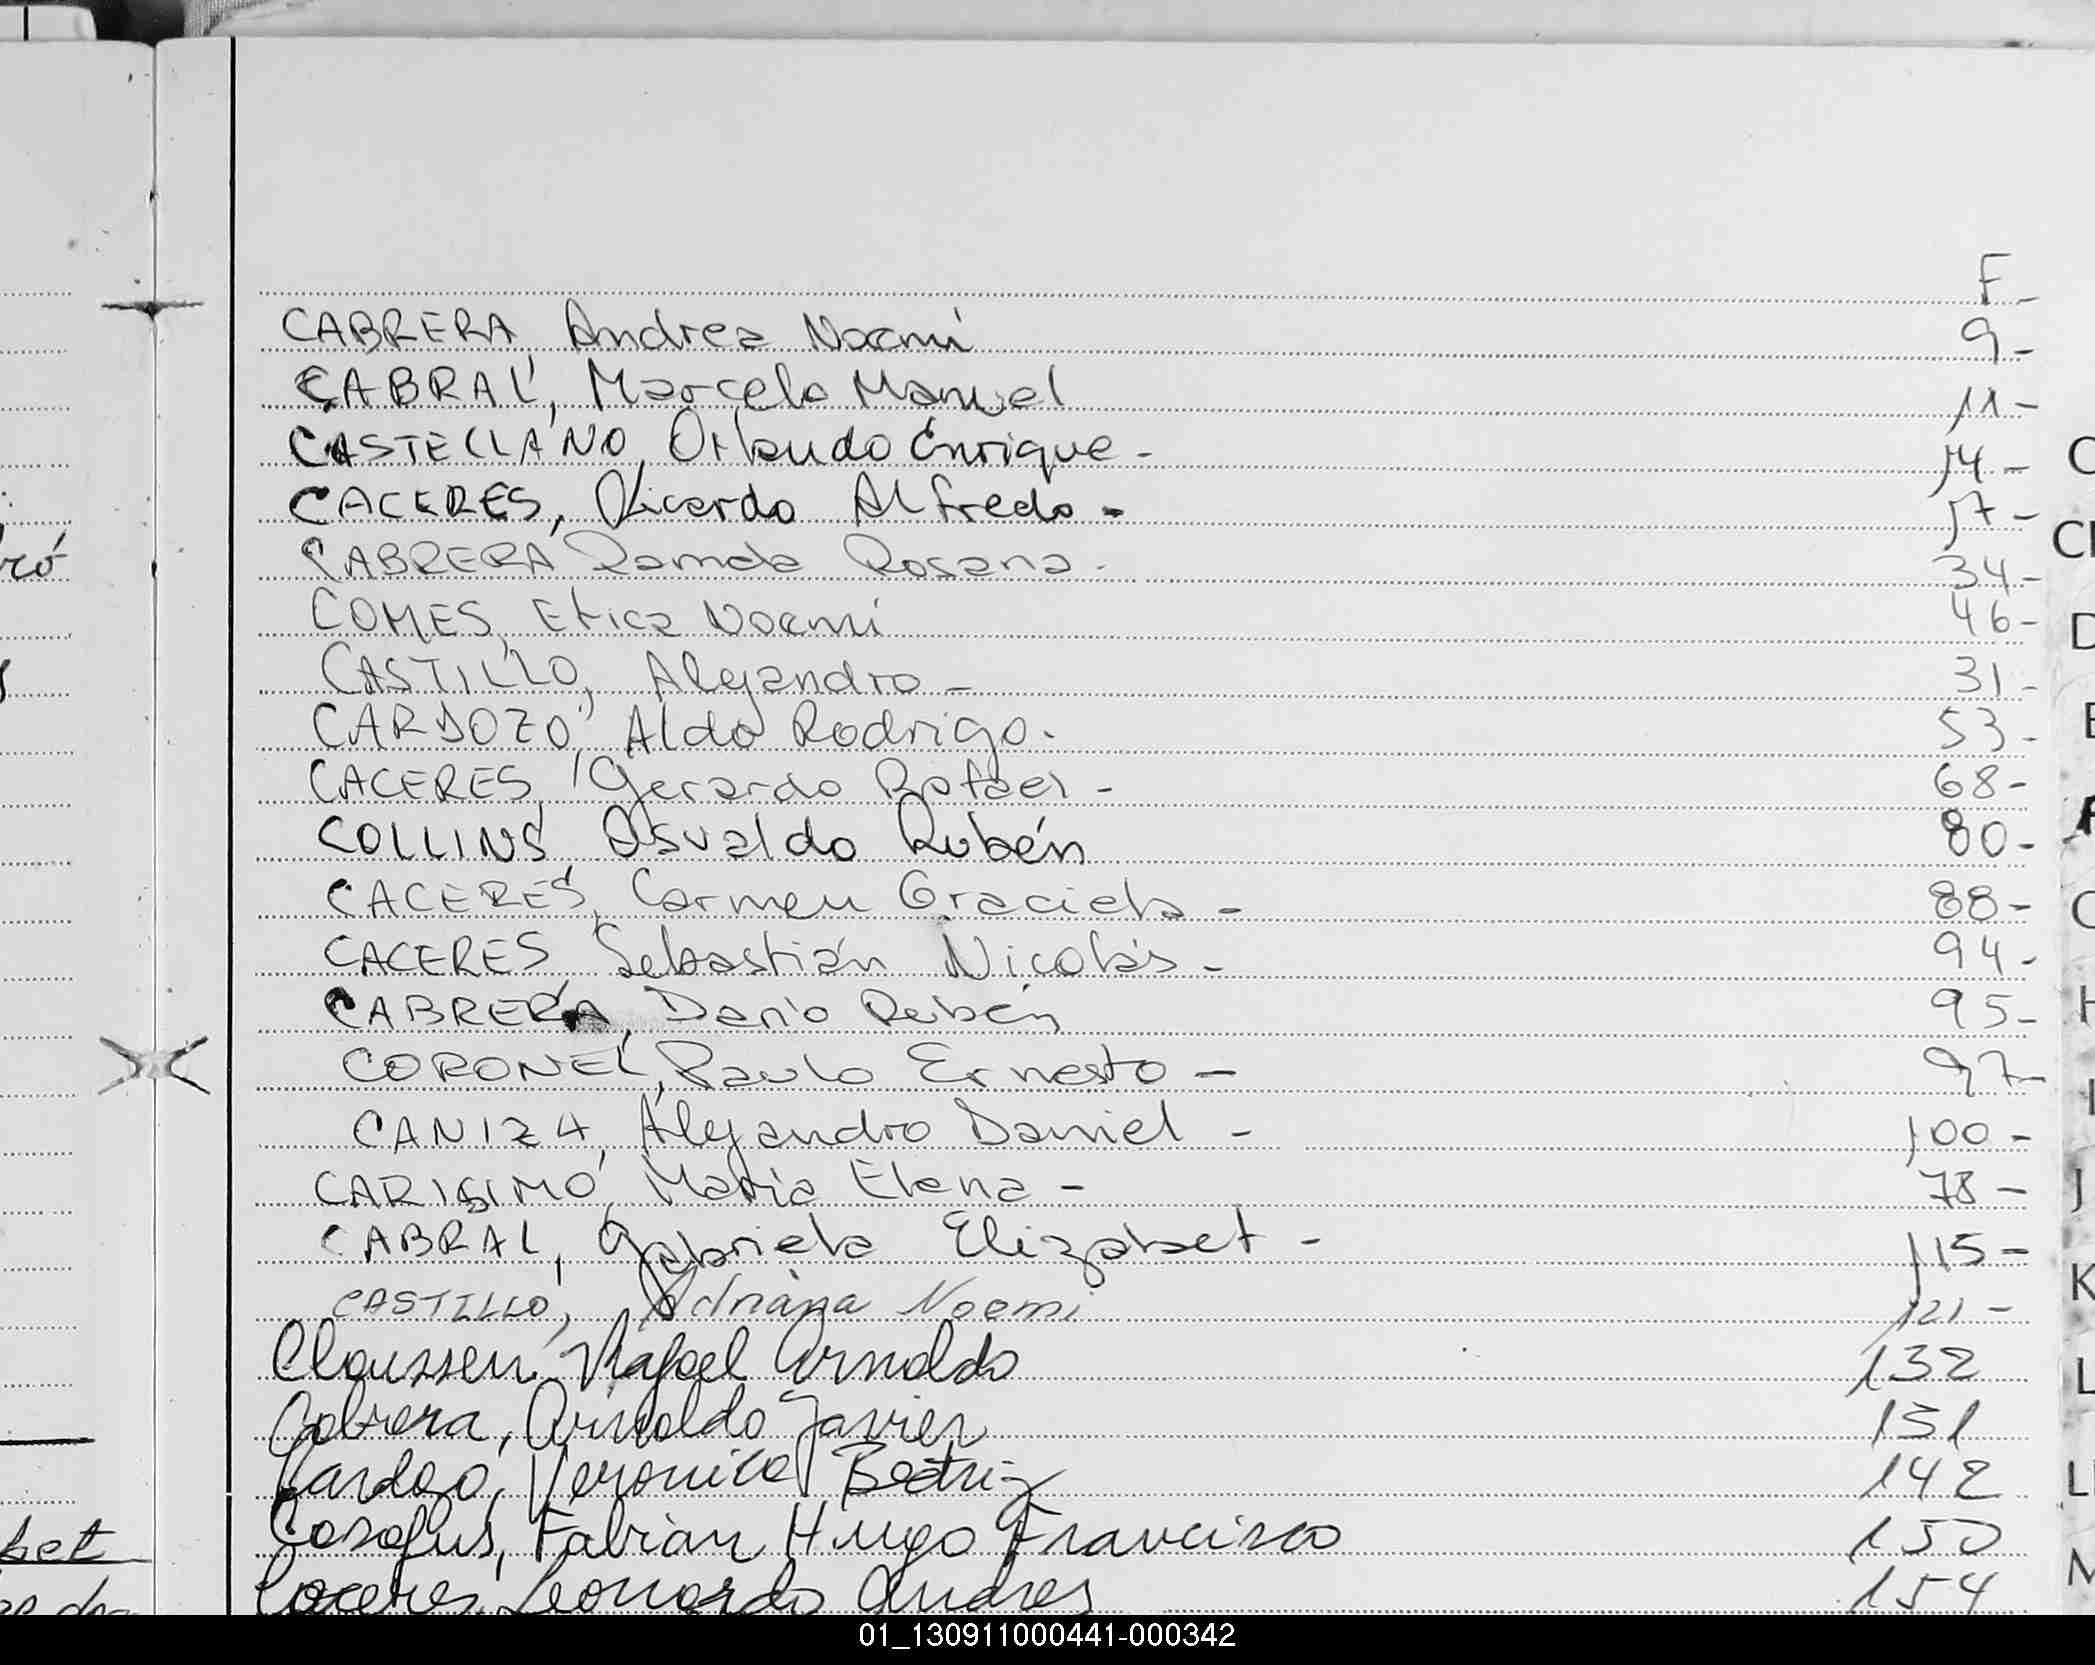 F-
CABRERA, Andrea Noemí 9-
CABRAL, Marcelo Manuel 11-
CASTELLANO, Orlando Enrique - 14-
CACERES, Ricardo Alfredo - 17-
CABRERA Ramda Rosana - 34-
COMES, Erica Noemí 46-
CASTILLO, Alejandro - 31-
CARDOZO, Aldo Rodrigo. 53-
CACERES, Gerardo Rafael - 68-
COLLINS, Osvaldo Rubén 80-
CACERES, Carmen Graciela - 88-
CACERES, Sebastián Nicolás - 94-
CABRERA, Darío Rubén 95-
CORONEL, Paulo Ernesto - 97-
CANIZA, Alejandro Daniel - 100-
CARISIMO, María Elena - 78-
CABRAL, Gabriela Elizabet - 115-
CASTILLO, Adriana Noemi 121-
Claussen, Rafael Arnoldo 132
Cabrera, Arnoldo Javier 131
Cardozo, Veronica Beatriz 142
Fabian Hugo Francisco 150
Caceres, Leonardo Andres 154
ró
bet
C
D
E
C
H
I
J
K
L
M
01_130911000441-000342